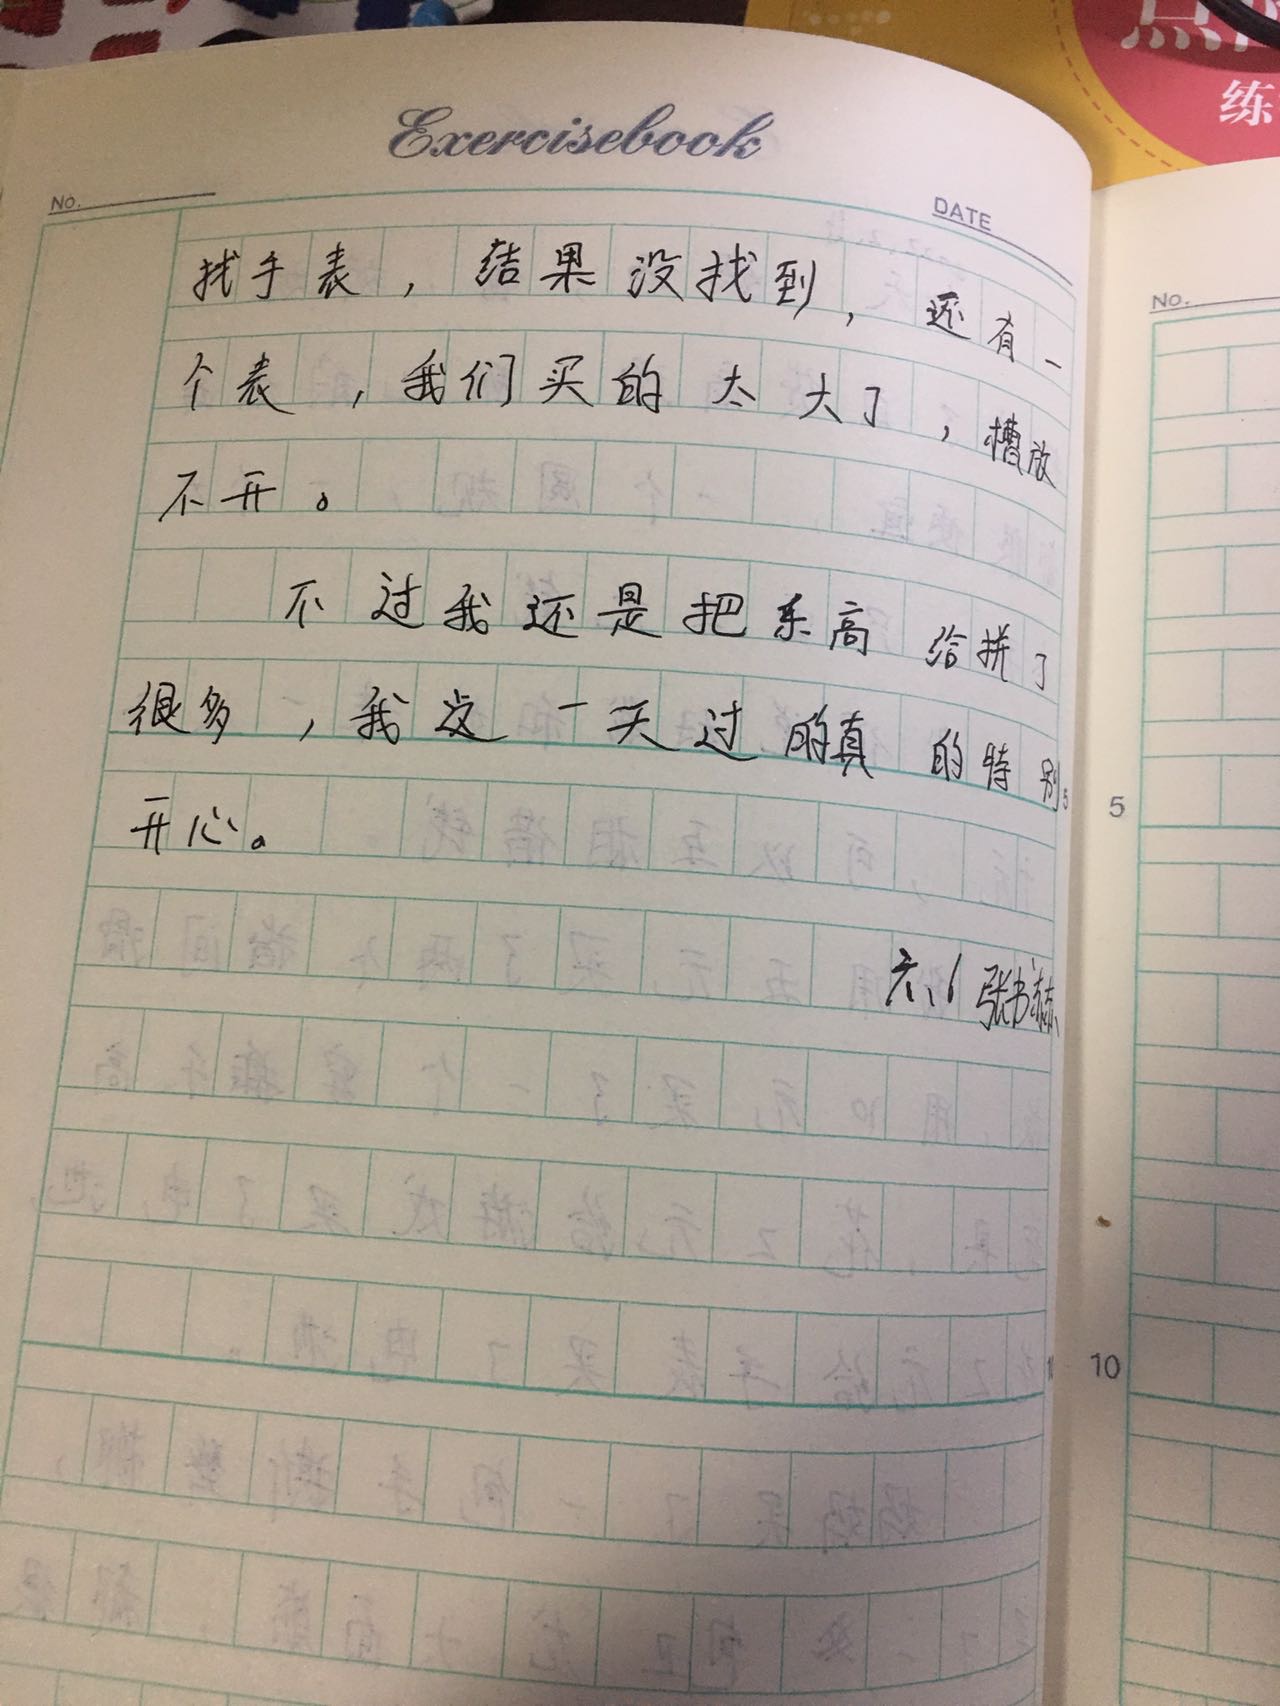 点
练
Exercisebook
No.
DATE
找手表，结果没找到，还有一
个表，我们买的太大了，槽放
不开。
不过我还是把乐高给拼了
很多，我这一天过的真的特别
开心。
六、6 张书赫
5
10
No.
5
10